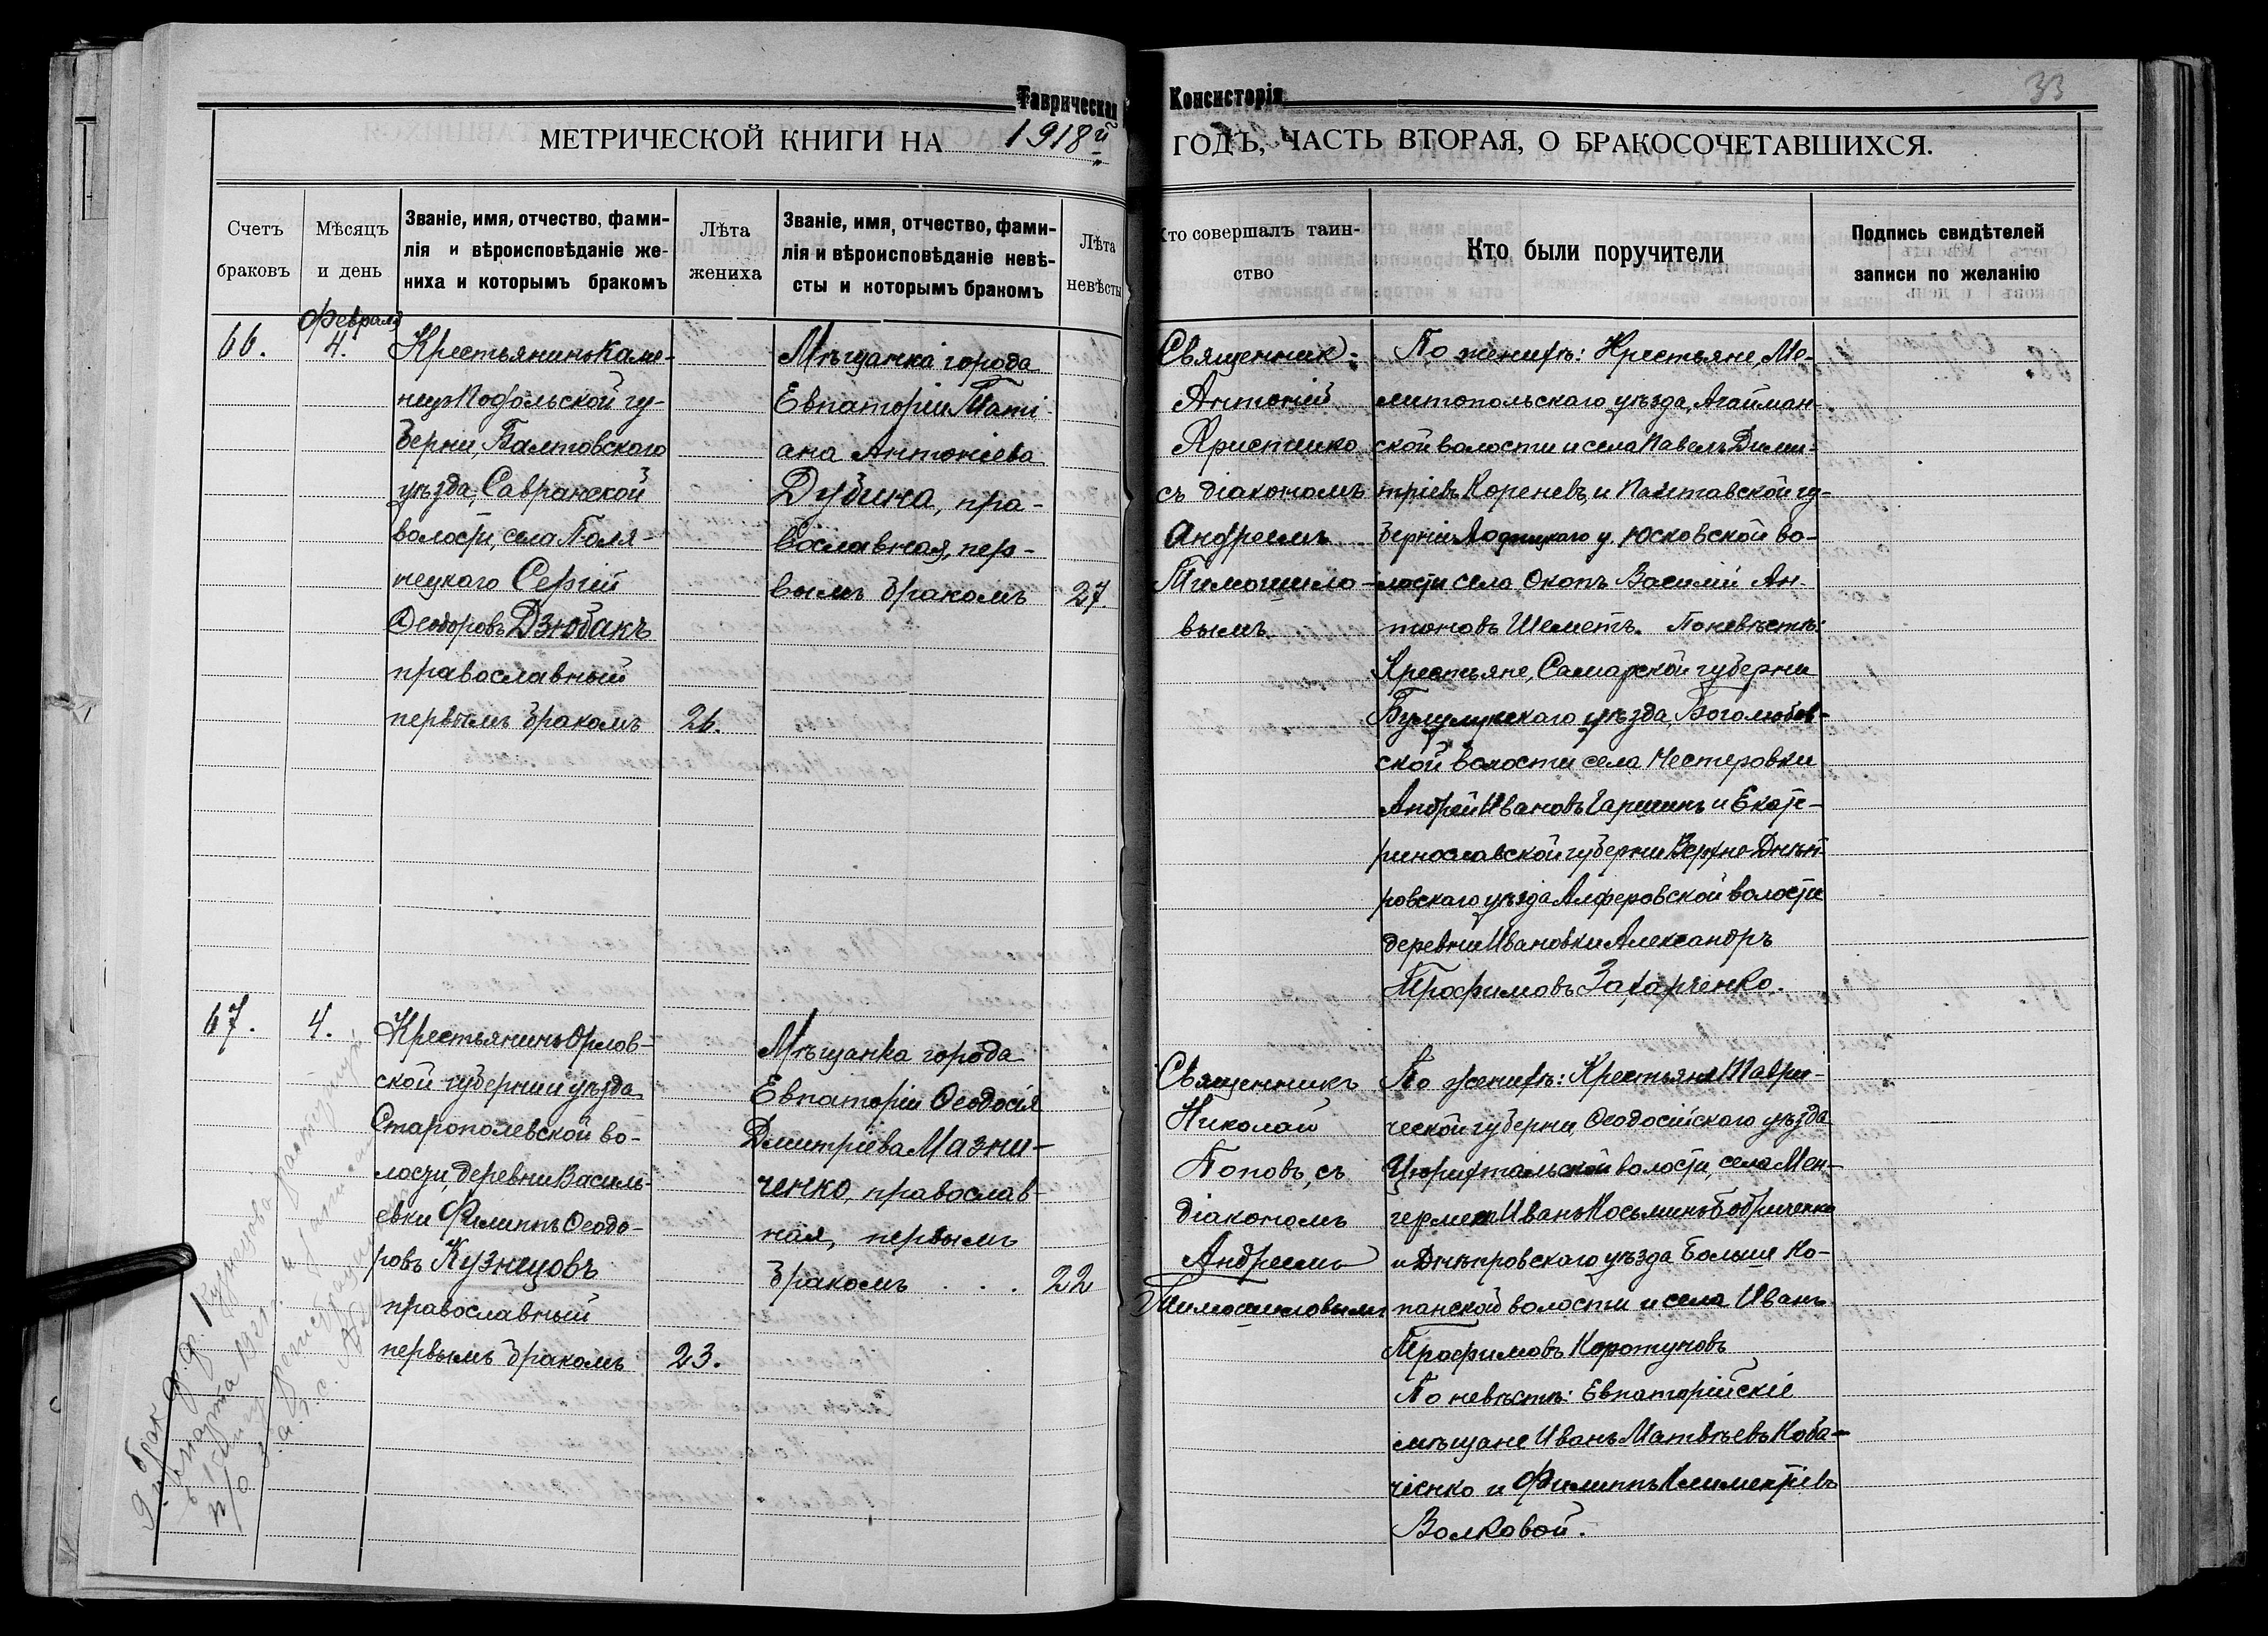 Таврическая Консисторія
33
МЕТРИЧЕСКОЙ КНИГИ НА 1918й ГОДЪ, ЧАСТЬ ВТОРАЯ, О БРАКОСОЧЕТАВШИХСЯ.
Счетъ
браковъ
Мѣсяцъ
и день
Званіе, имя, отчество, фами-
лія и вѣроисповѣданіе же-
ниха и которымъ бракомъ
Лѣта
жениха
Званіе, имя, отчество, фами-
лія и вѣроисповѣданіе невѣ-
сты и которымъ бракомъ
Лѣта
невѣсты
Кто совершалъ таин-
ство
Кто были поручители
Подпись свидѣтелей
записи по желанію
66.
Февраля
4.
Крестьянинъ Каме-
нецъ Подольской гу-
берни, Балтовского
уѣзда, Савранской
волости, села Поля-
нецкого Сергій
Ѳеодоровъ Дзюбакъ
православный
первымъ бракомъ
26.
Мѣщанка города
Евпаторіи Тати-
ана Антоніева
Дубина, пра-
вославная, пер-
вымъ бракомъ
27.
Священник:
Антоній
Аристенко
съ діакономъ
Андреемъ
Тимошило-
вымъ
По женихѣ: Крестьяне, Ме-
литопольскаго уѣзда, Агайман-
ской волости и села Павелъ Дими-
тріевъ Кореневъ, и Полтавской гу-
берніи Лодницкаго у. Юсковской во-
лости села Окопъ Василій Ан-
тоновъ Шеметъ. По невѣстѣ:
Крестьяне, Самарской губерни
Бузулукскаго уѣзда, Боголюбов-
ской волости села Нестеровки
Андрей Ивановъ Гаршинъ и Екате-
ринославской губерни Верхне Днѣп-
ровскаго уѣзда Алферовской волости
деревни Ивановки Александръ
Трофимовъ Захарченко.
67.
4.
Крестьянинъ Орлов-
ской губернии уѣзда
Старополевской во-
лости, деревни Василь-
евки Филиппъ Ѳеодо-
ровъ Кузнецовъ
православный
первымъ бракомъ
23.
Мѣщанка города
Евпаторіи Ѳеодосія
Дмитріева Мазни-
ченко, православ-
ная, первымъ
бракомъ . . .
22
Священникъ
Николай
Поповъ, съ
діакономъ
Андреемъ
Тимошиловымъ
По женихѣ: Крестьяне Таври-
ческой губерни, Ѳеодосійскаго уѣзда
Цюрихтальской волости, села Мен-
гермен Иванъ Косьминъ Бобриченко
и Днѣпровскаго уѣзда Больше Ко-
панской волости и села Иванъ
Трофимовъ Коротуновъ
По невѣстѣ: Евпаторійскіе
мѣщане Иванъ Матвѣевъ Коба-
ченко и Филиппъ Климентіевъ
Волковой.
брак Ф. Ф. Кузнецова расторгнут
марта 1921 г.
з.а.г.с.